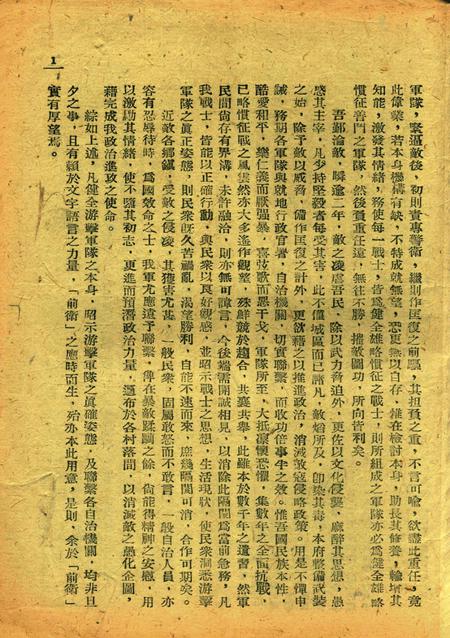 軍隊，緊逼敵後，初則責專警衛，繼則作匡復之前驅，其担負之重，不言可喻，欲盡此重任，竟
此偉業，若本身機構有缺，不特成就無望，恐更無以自存，惟在檢討本身，助長其修養，輸增其
知能，激發其情緒，務使每一戰士，皆爲健全雄略慣征之戰士，則所組成之軍隊亦必爲健全雄略
慣征善鬥之軍隊，然後負重任遠，無往不勝，摧敵圖功，所向皆利矣。
吾鄞淪敵，瞬逾二年，敵之凌虐吾民，除以武力脅迫外，更佐以文化侵畧，麻醉其思想，愚
惑其主宰，凡少持堅毅者每受其害，此不僅城區而已諸凡，敵始所及，卽染其毒，本府整備武裝
之始，除予敵以威脅，備作匡復之計外，更欲藉之以推進政治，消滅敵寇侵略政策。用是不憚申
誡，務期各軍隊與就地行政官署，自治機關，切實聯繫，而收功倍事半之效。惟吾國民族本性，
酷愛和平，樂仁義而厭强暴，喜玫歌而惡干戈，軍隊所至，大抵凛懷恐懼，集數年之全面抗戰，
已略慣征戰之風雲然亦大多遙作觀望，殊鮮競於趨合，共襄共舉，此雖本於數千年之遺習，然軍
民間尙存有界溝，未許融洽，則亦無可諱言，今後端需開誠相見，以消除此隔閡爲當前急務，凡
我戰士，皆能以正確行動，與民衆以良好觀感，並昭示戰士之思想，生活現狀，使民衆洞悉游擊
軍隊之眞正姿態，則民衆旣久苦禍亂，渴望勝利，自能不速而來，庶幾隔閡可消，合作可期矣。
近敵各鄉鎮，受敵之侵凌，其獨害尤甚，一般民衆，固屬敢怒而不敢言，一般自治人員，亦
容有忍辱待時，爲國效命之士，我軍尤應遠予聯繫，俾在暴敵蹂躪之餘，尙能得精神之安慰，用
以激勵其情緒，使不隳其初志，更進而預潛政治力量，遍布於各村落間，以消滅敵之愚化企圖，
藉完成我政治進攻之使命。
綜如上述，凡健全游擊軍隊之本身，昭示游擊軍隊之眞確姿態，及聯繫各自治機關，均非旦
夕之事，且有賴於文字語言之力量，「前衛」之應時而生，殆亦本此用意，是則，余於「前衛」
實有厚望焉。
1